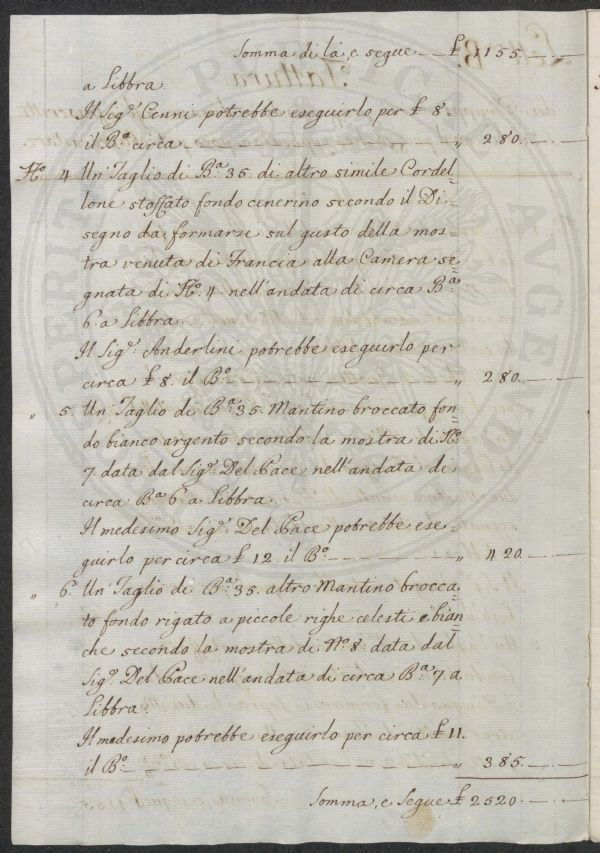 Somma di là, e segue — £ 1155. — . —
a Libbra.
Il Sig.r Cenni potrebbe eseguirlo per £ 8.
il B.o circa — — — „ 280. — . —
N.o 4. Un Taglio di B.a 35. di altro simile Cordel=
lone stoffato fondo cenerino secondo il Di=
segno da formarsi sul gusto della mos=
tra venuta di Francia alla Camera se=
gnata di N.o 4. nell'andata di circa B.a
6. a Libbra.
Il Sig.r Anderlini potrebbe eseguirlo per
circa £ 8. il B.o — — — „ 280. — . —
„ 5. Un Taglio di B.a 35. Mantino broccato fon=
do bianco argento secondo la mostra di N.o
7. data dal Sig.r Del Pace nell'andata di
circa B.a 6. a Libbra.
Il medesimo Sig.r Del Pace potrebbe ese=
guirlo per circa £ 12. il B.o — — — „ 420. — . —
„ 6. Un Taglio di B.a 35. altro Mantino brocca=
to fondo rigato a piccole righe celesti e bian=
che secondo la mostra di N.o 8. data dal
Sig.r Del Pace nell'andata di circa B.a 7. a
Libbra.
Il medesimo potrebbe eseguirlo per circa £ 11.
il B.o — — — „ 385. — . —
Somma, e Segue £ 2520. — . —